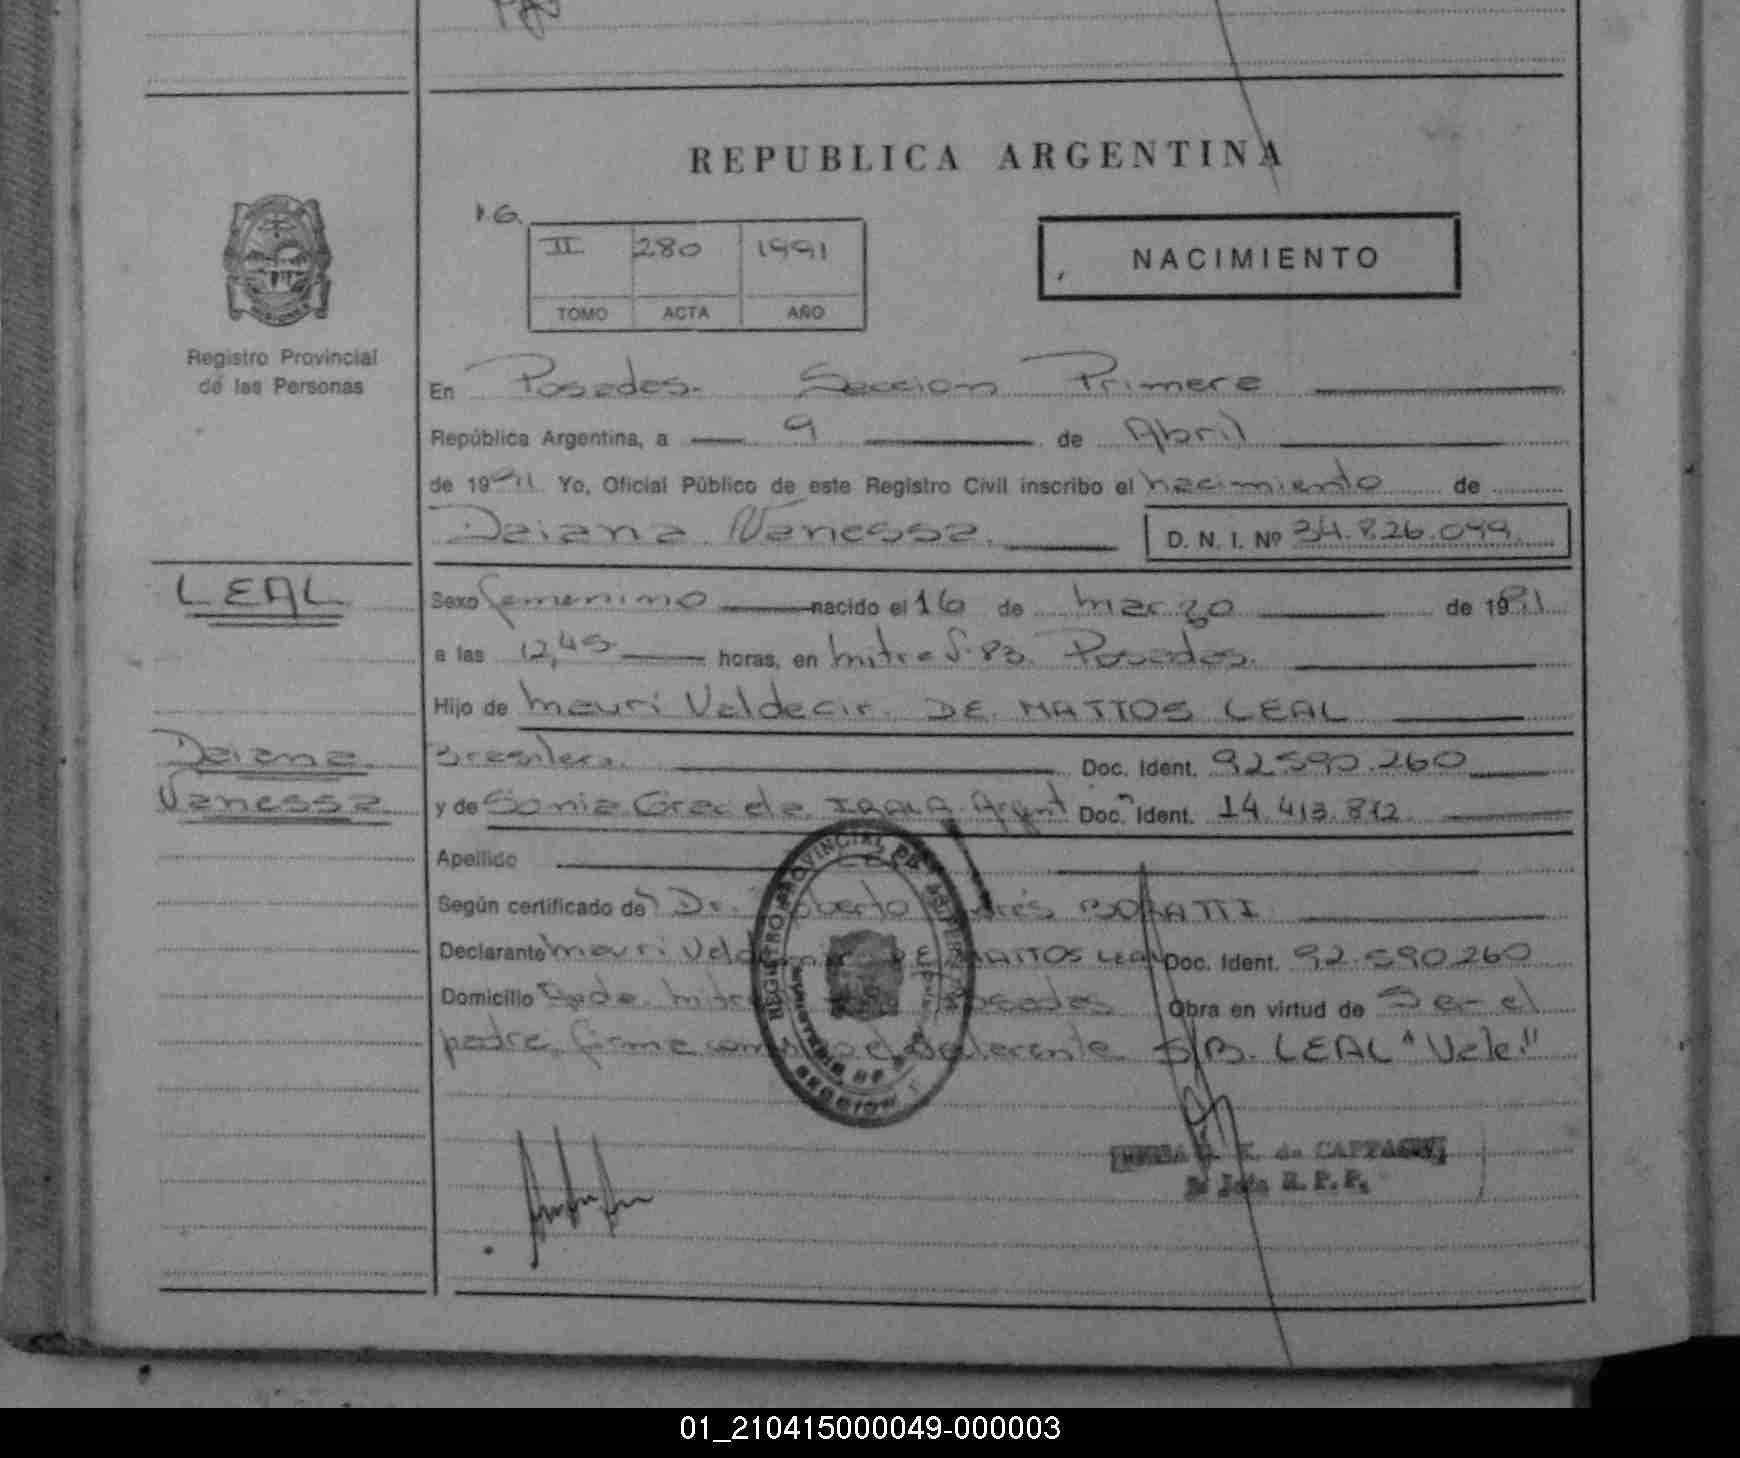 REPUBLICA ARGENTINA
II 280 1991
TOMO ACTA AÑO
NACIMIENTO
Registro Provincial
de las Personas
En Posadas. Seccion Primera
República Argentina, a 9 de Abril
de 1991 Yo, Oficial Público de este Registro Civil inscribo el nacimiento de
Daiana Vanessa. D. N. I. Nº 34.826.099
LEAL
Sexo femenino nacido el 16 de marzo de 1991
a las 12,45 horas, en mitre Posadas.
Hijo de Mauri Valdecir DE MATTOS LEAL
Daiana
Vanessa
Brasilera. Doc. Ident. 92.590.260
y de Sonia Graciela IRALA Argent Doc. Ident. 14.413.872
Apellido
Según certificado de Dr. Roberto Andrés
Declarante Mauri DE MATTOS LEAL Doc. Ident. 92.590.260
Domicilio Avda. mitre Posadas Obra en virtud de Ser el
padre, firma declarante S/B. LEAL "Vale"
REGISTRO PROVINCIAL DE LAS PERSONAS
MINISTERIO DE
SECCION 1
de
R. P. P.
01_210415000049-000003